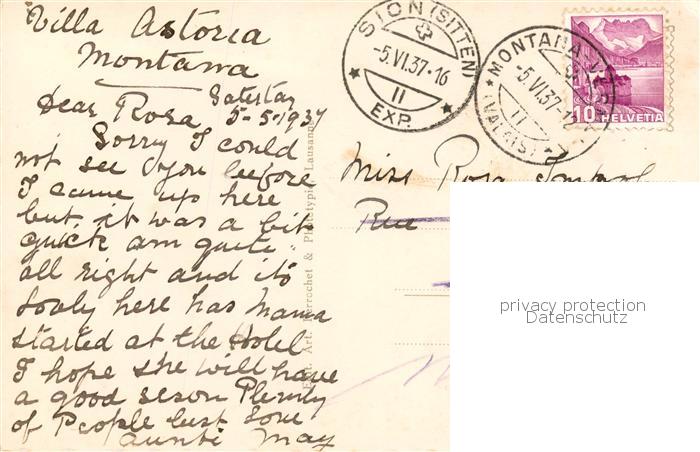 Villa Astoria
Montana
Saterday
5-5-1937
Dear Rosa
Sorry I could
not see you beefore
I came up here
but it was a bit
quick am quite
all right and its
lovly here has Mama
started at the Hotel
I hope she will have
a good seson Plenty
of People best love
Aunti May
SION (SITTEN)
-5.VI.37-16
II
EXP.
MONTANA
-5.VI.37-1
II
(VALAIS)
10 HELVETIA
Miss Rosa
Rue
Perrochet & Phototypie Lausanne
privacy protection
Datenschutz